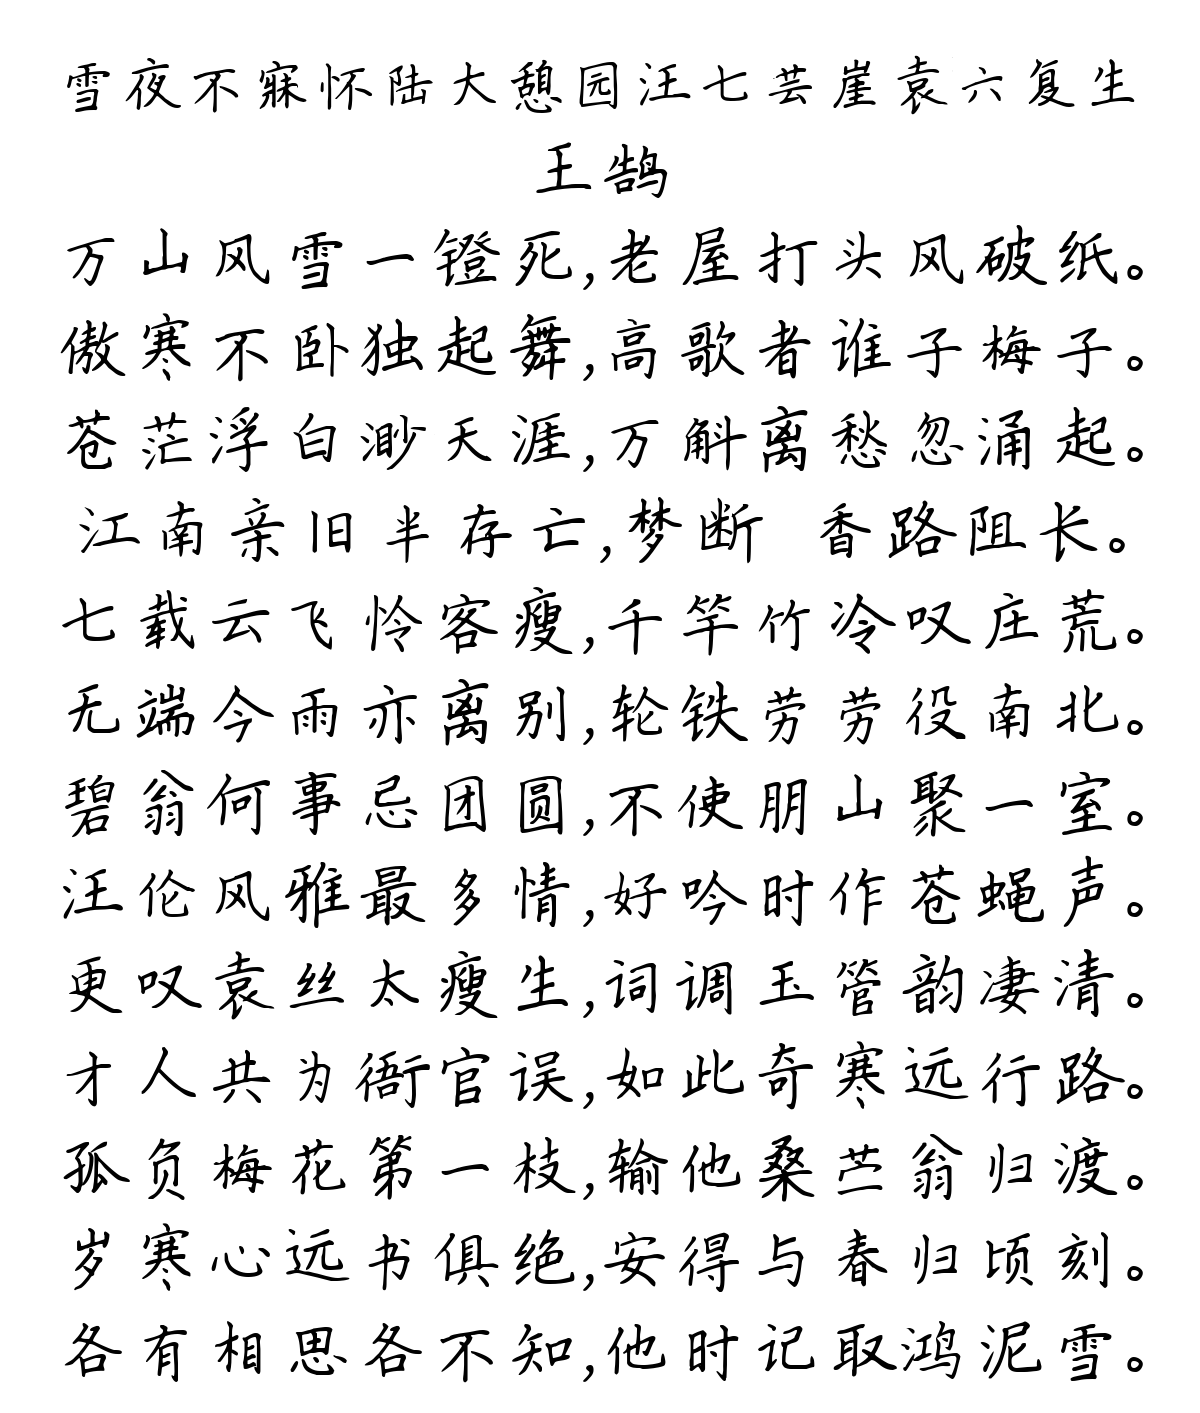 雪夜不寐怀陆大憩园汪七芸崖袁六复生
王鹄
万山风雪一镫死,老屋打头风破纸。
傲寒不卧独起舞,高歌者谁子梅子。
苍茫浮白渺天涯,万斛离愁忽涌起。
江南亲旧半存亡,梦断 香路阻长。
七载云飞怜客瘦,千竿竹冷叹庄荒。
无端今雨亦离别,轮铁劳劳役南北。
碧翁何事忌团圆,不使朋山聚一室。
汪伦风雅最多情,好吟时作苍蝇声。
更叹袁丝太瘦生,词调玉管韵凄清。
才人共为衙官误,如此奇寒远行路。
孤负梅花第一枝,输他桑苎翁归渡。
岁寒心远书俱绝,安得与春归顷刻。
各有相思各不知,他时记取鸿泥雪。